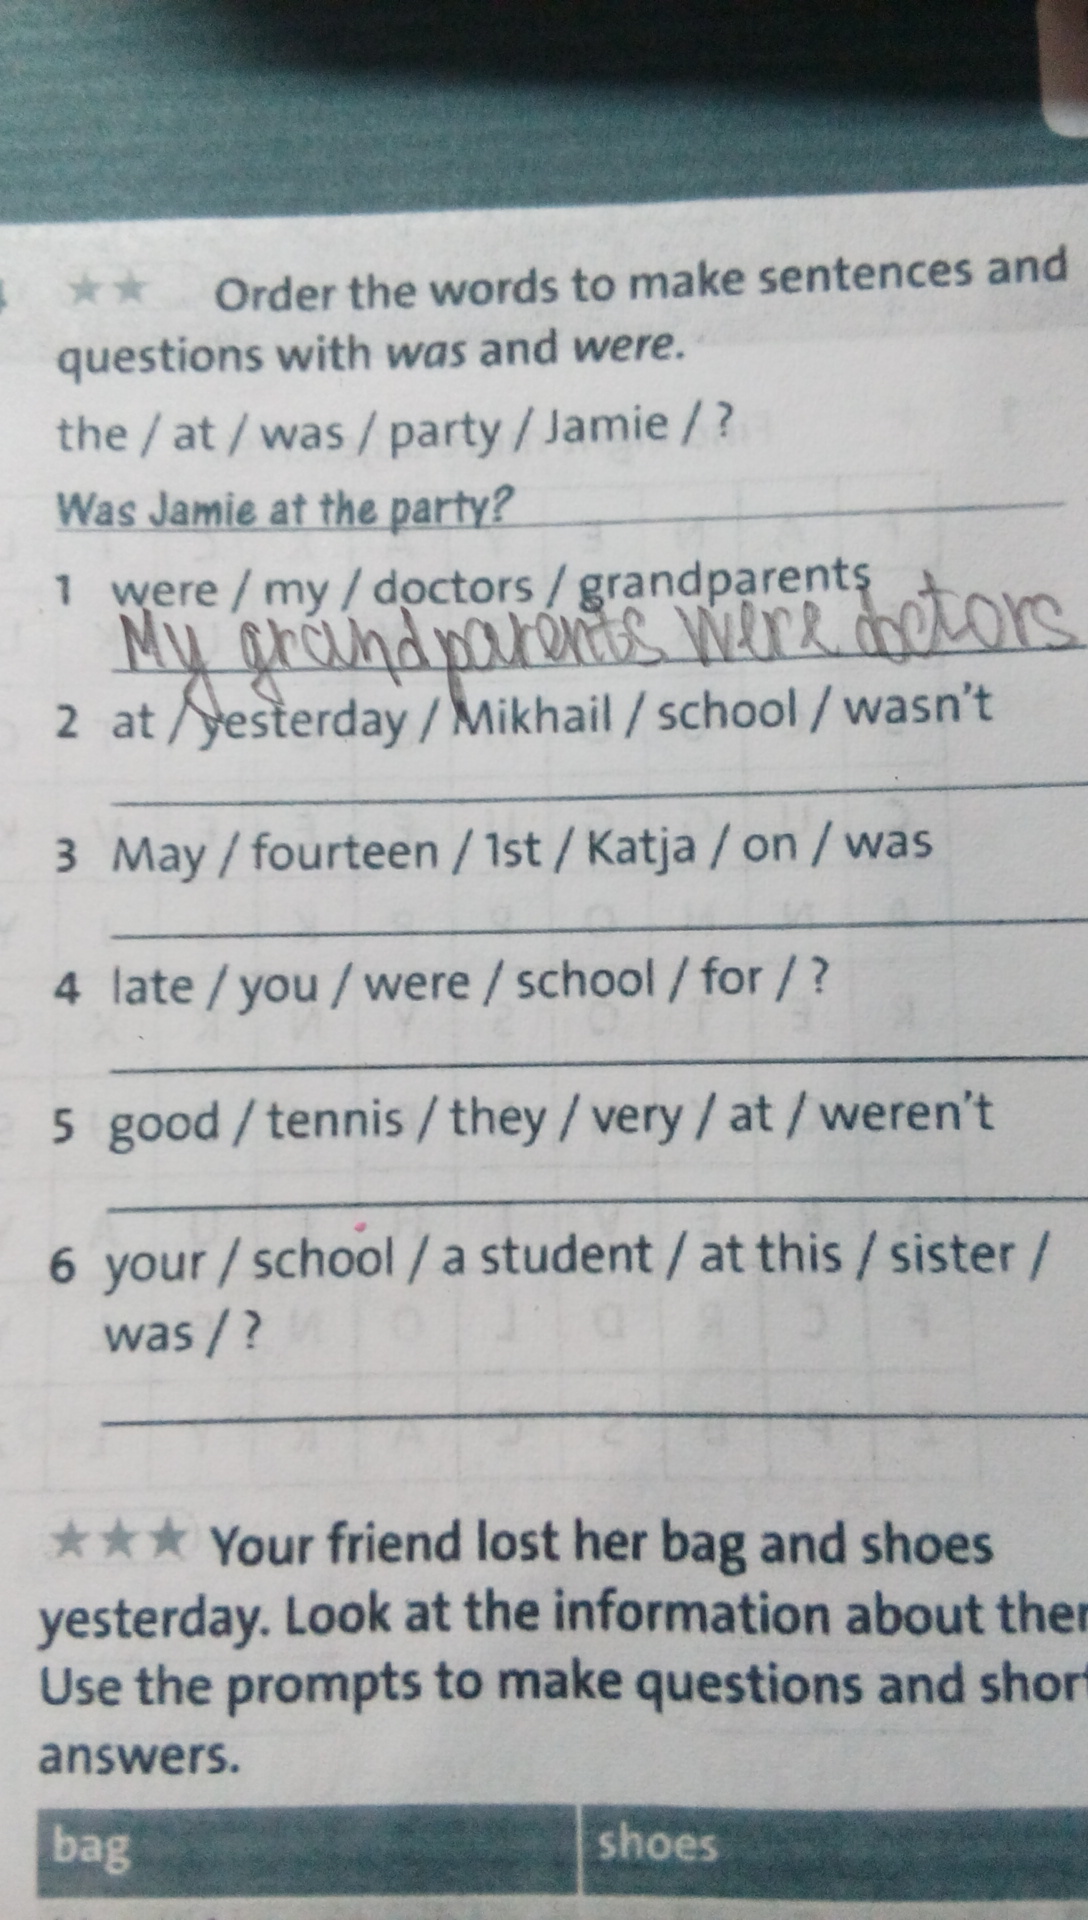 ★★ Order the words to make sentences and
questions with was and were.
the / at / was / party / Jamie / ?
Was Jamie at the party?
1 were / my / doctors / grandparents
My grandparents were doctors
2 at / yesterday / Mikhail / school / wasn't
3 May / fourteen / 1st / Katja / on / was
4 late / you / were / school / for / ?
5 good / tennis / they / very / at / weren't
6 your / school / a student / at this / sister /
was / ?
★★★ Your friend lost her bag and shoes
yesterday. Look at the information about
Use the prompts to make questions and
answers.
bag shoes